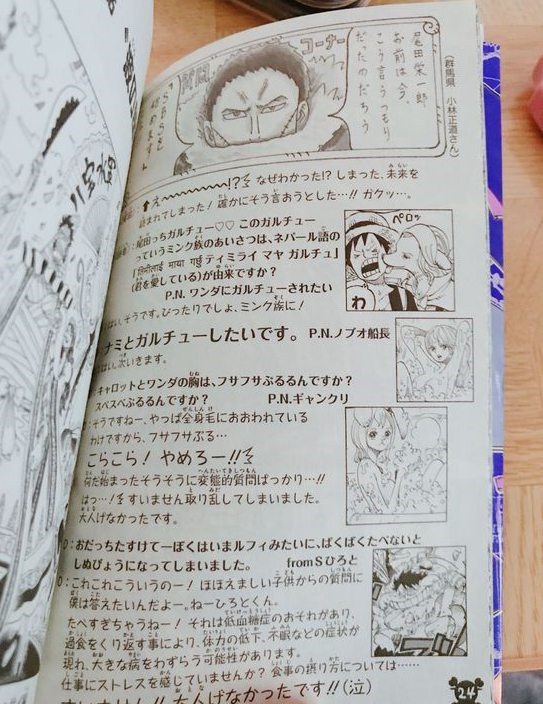 (群馬県 小林正道さん)
尾田栄一郎
お前は今、
こう言うつもり
だったのだろう
質問
コーナー
始めます」
↑え〜〜〜〜!?なぜわかった!?しまった、未来を
読まれてしまった!確かにそう言おうとした…!!ガクッ…。
尾田っちガルチュー♡♡このガルチュー
っていうミンク族のあいさつは、ネパール語の
(君を愛している)が由来ですか?
P.N.ワンダにガルチューされたい
はい、そうです。ぴったりでしょ、ミンク族に!
ペロッ
わ
ナミとガルチューしたいです。P.N.ノブオ船長
はい。次いきます。
キャロットとワンダの胸は、フサフサぷるるんですか?
スベスベぷるるんですか? P.N.ギャンクリ
そうですねー、やっぱ全身毛におおわれている
わけですから、フサフサぷる…
こらこら!やめろー!!
何だ始まったそうそうに変態的質問ばっかり…!!
はっ…!すいません取り乱してしまいました。
大人げなかったです。
おだっちたすけてーぼくはいまルフィみたいに、ばくばくたべないと
しぬびょうになってしまいました。 fromSひろと
O:これこれこういうのー!ほほえましい子供からの質問に
僕は答えたいんだよー。ねーひろとくん。
たべすぎちゃうねー!それは低血糖症のおそれがあり、
過食をくり返す事により、体力の低下、不眠などの症状が
現れ、大きな病をわずらう可能性があります。
仕事にストレスを感じていませんか?食事の摂り方については……
すいません!!大人げなかったです!!(泣)
24